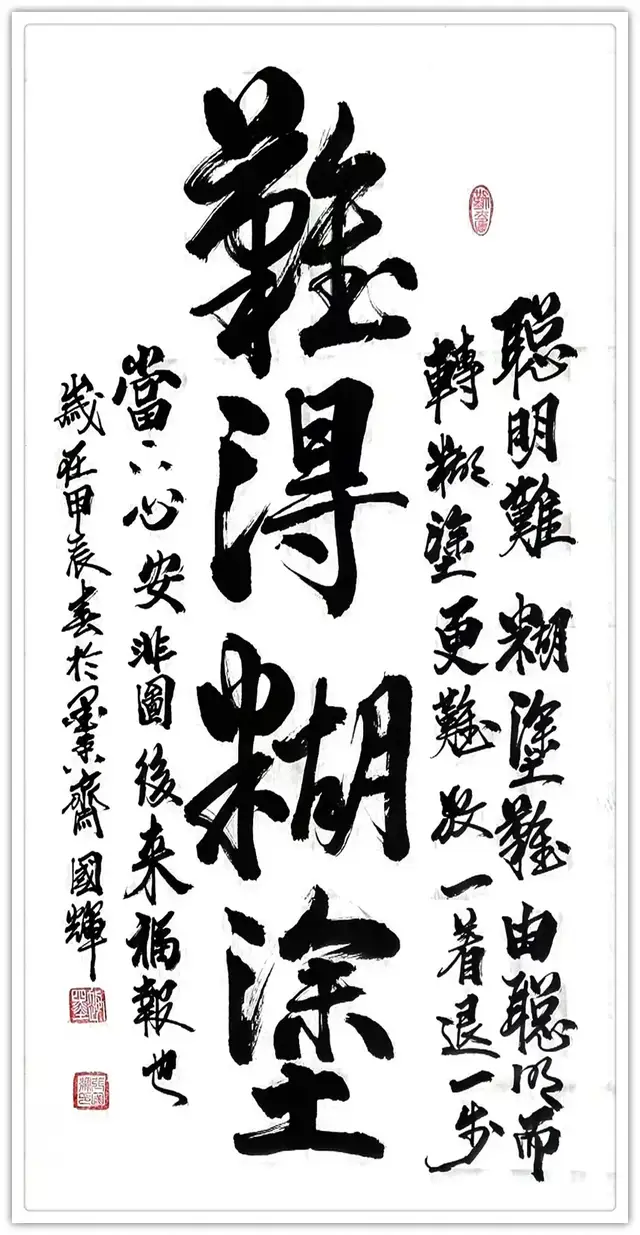 聪明難糊塗難由聪明而
轉糊塗更難放一着退一步
難得糊塗
當下心安非圖後来福報也
歲在甲辰春於墨齋國輝